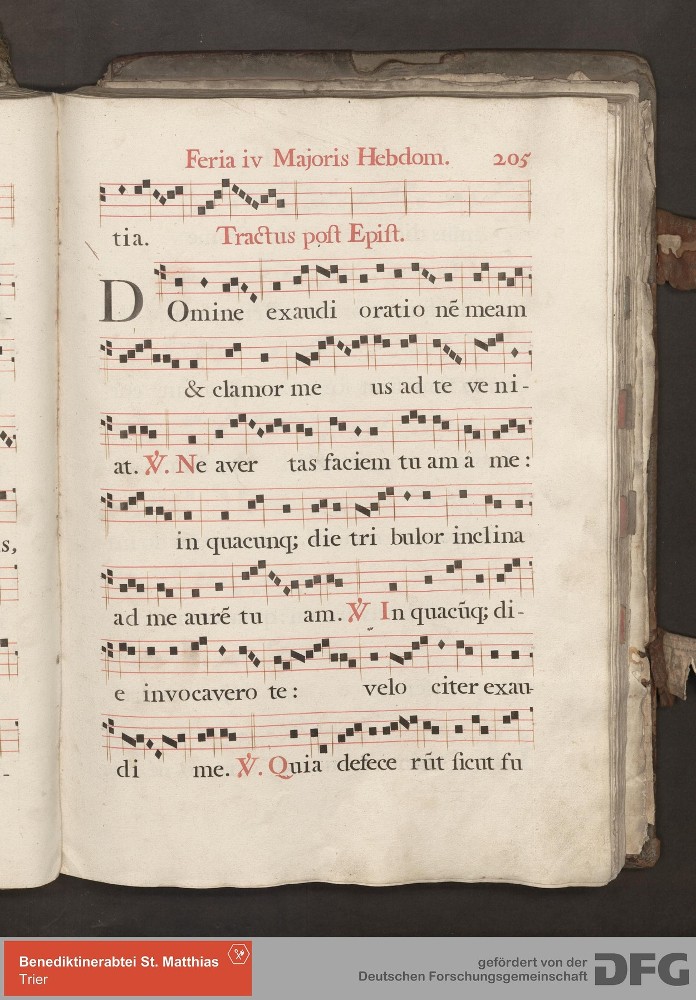 Feria iv Majoris Hebdom. 205
tia. Tractus post Epist.
DOmine exaudi oratio nē meam
& clamor me us ad te ve ni-
at. ℣. Ne aver tas faciem tu am à me:
s, in quacunq; die tri bulor inclina
ad me aurē tu am. ℣ In quacūq; di-
e invocavero te: velo citer exau-
di me. ℣. Quia defece rūt sicut fu
Benediktinerabtei St. Matthias
Trier
gefördert von der
Deutschen Forschungsgemeinschaft DFG